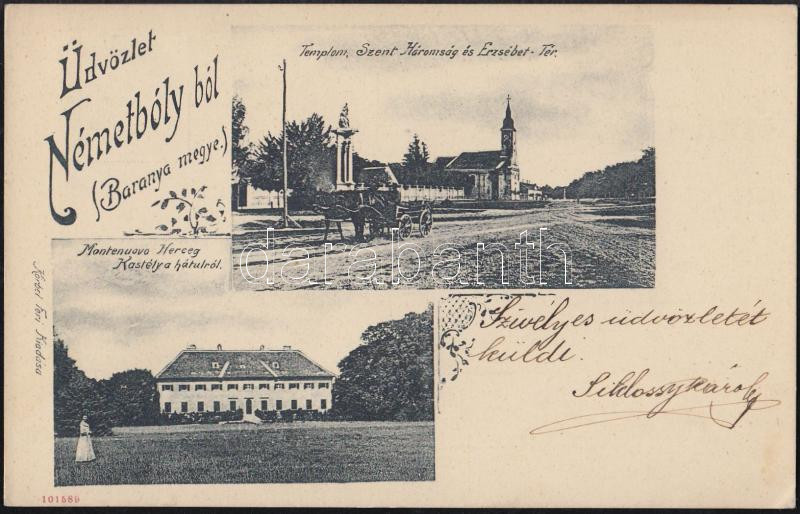 Üdvözlet
Németbóly ból
(Baranya megye.)
Templom, Szent-Háromság és Erzsébet-Tér.
Montenuovo Herceg
Kastélya hátulról.
darabanth
Szivélyes üdvözletét
küldi.
Siklossy károly
Kiadása
101589